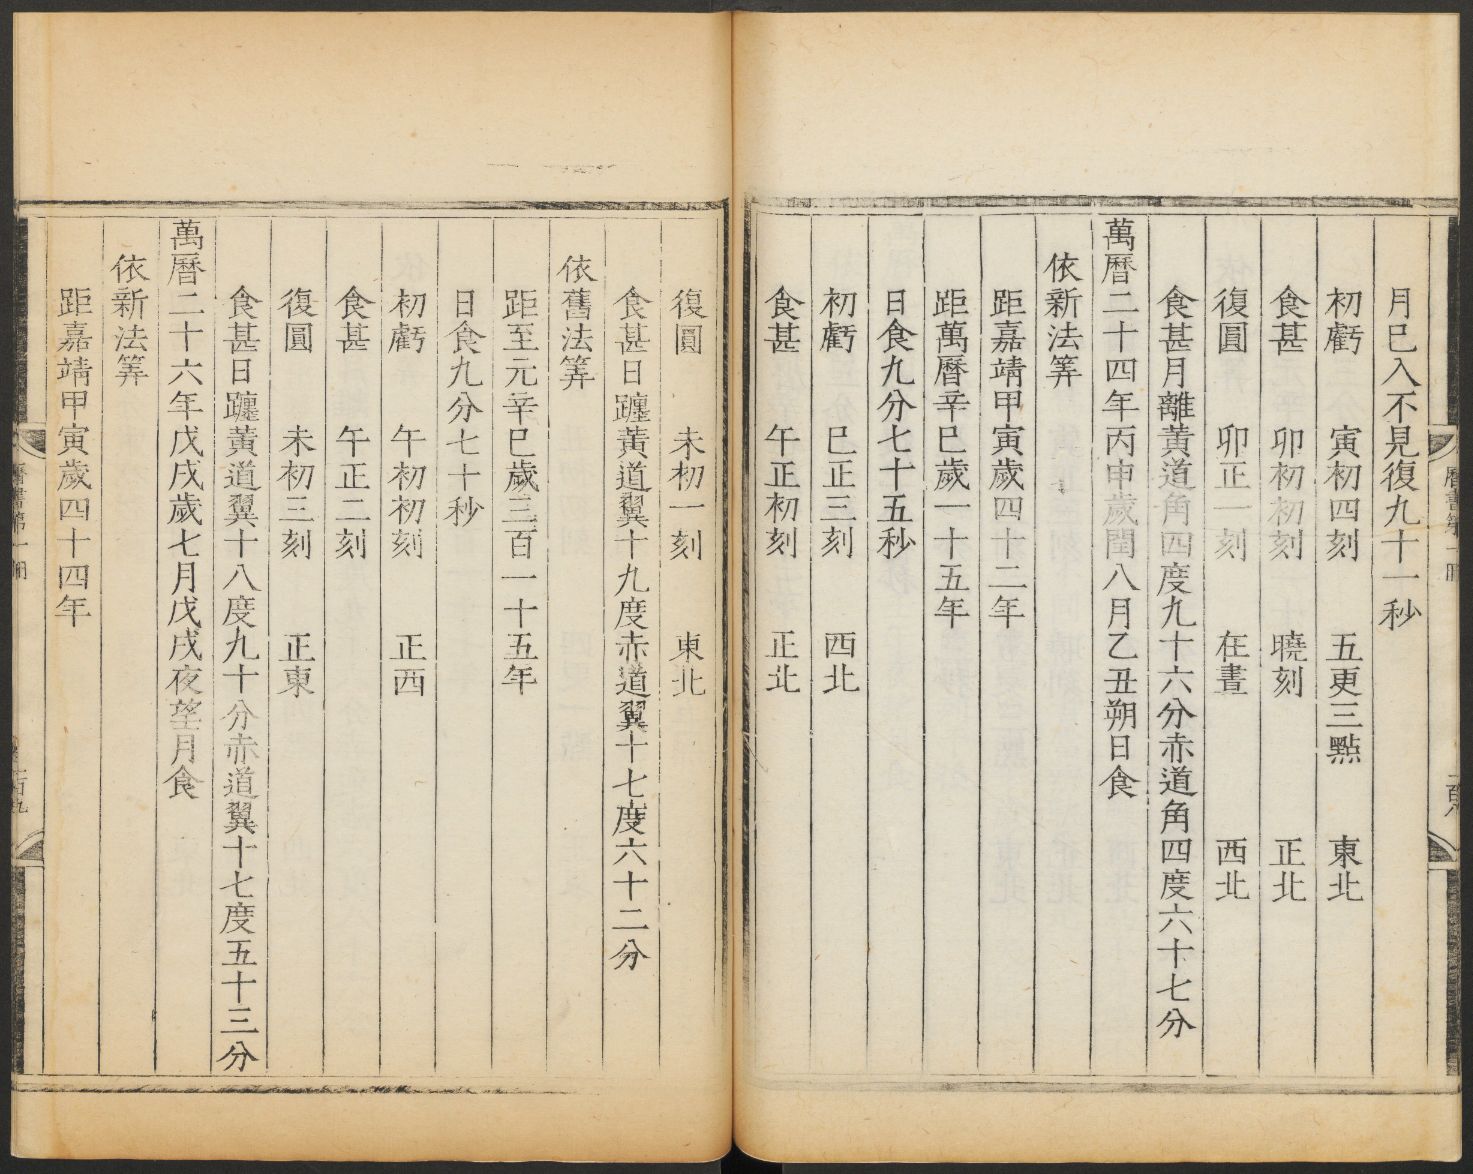 月已入不見復九十一秒
初虧 寅初四刻 五更三點 東北
食甚 卯初初刻 曉刻 正北
復圓 卯正一刻 在晝 西北
食甚月離黃道角四度九十六分赤道角四度六十七分
萬曆二十四年丙申歲閏八月乙丑朔日食
依新法筭
距嘉靖甲寅歲四十二年
距萬曆辛巳歲一十五年
日食九分七十五秒
初虧 巳正三刻 西北
食甚 午正初刻 正北
復圓 未初一刻 東北
食甚日躔黃道翼十九度赤道翼十七度六十二分
依舊法筭
距至元辛巳歲三百一十五年
日食九分七十秒
初虧 午初初刻 正西
食甚 午正二刻
復圓 未初三刻 正東
食甚日躔黃道翼十八度九十分赤道翼十七度五十三分
萬曆二十六年戊戌歲七月戊戌夜望月食
依新法筭
距嘉靖甲寅歲四十四年